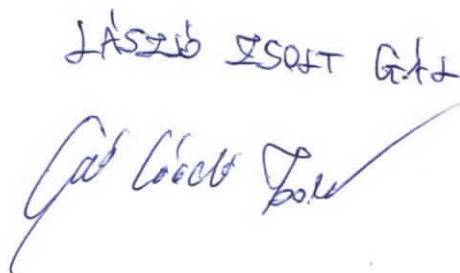 LÁSZLÓ ZSOLT GÁL
Gál László Zsolt